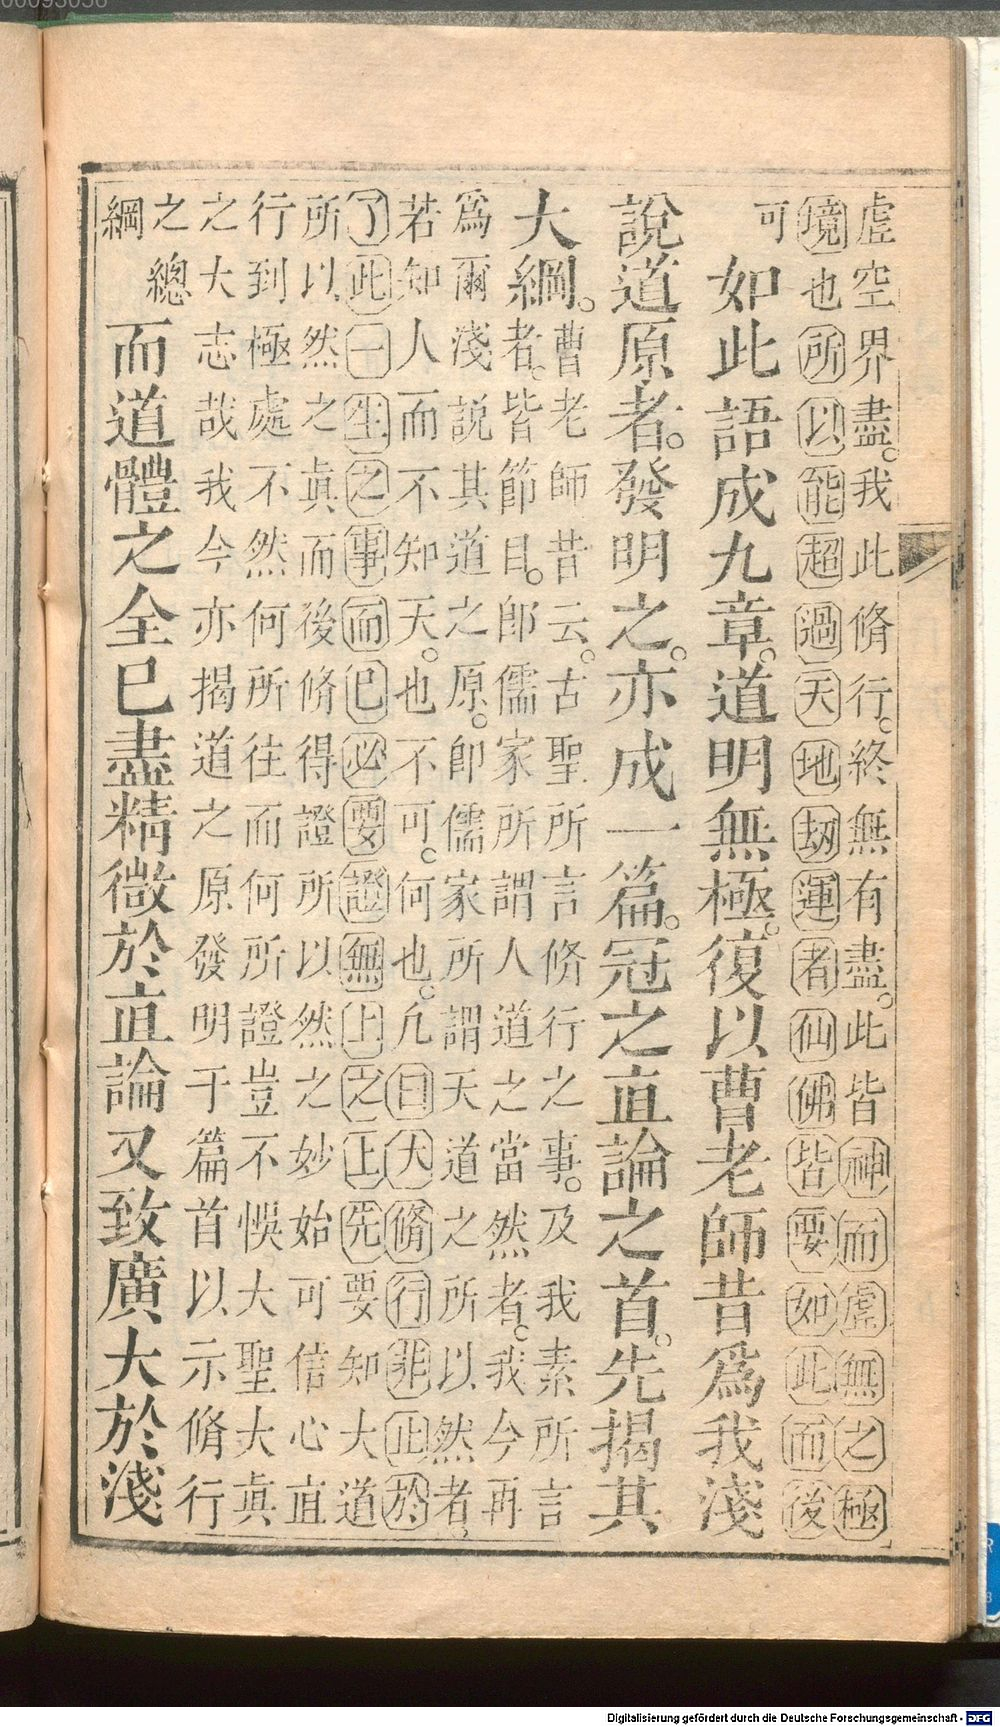 虛空界盡。我此脩行。終無有盡。此皆神而虛無之極
境也所以能超過天地刼運者仙佛皆要如此而後
可
如此語成九章。道明無極。復以曹老師昔爲我淺
說道原者。發明之。亦成一篇。冠之直論之首。先揭其
大綱。
曹老師昔云。古聖所言脩行之事。及我素所言
者。皆節目。卽儒家所謂人道之當然者。我今再
爲爾淺說其道之原。卽儒家所謂天道之所以然者,
若知人而不知天。也不可。何也。凢曰大脩行非止於
了此一生之事而已必要證無上之上先要知大道
所以然之眞而後脩得證所以然之妙始可信心直
行到極處不然何所往而何所證豈不悞大聖大眞
之大志哉我今亦揭道之原發明于篇首以示脩行
之總
綱
而道體之全已盡精微於直論又致廣大於淺
Digitalisierung gefördert durch die Deutsche Forschungsgemeinschaft - DFG